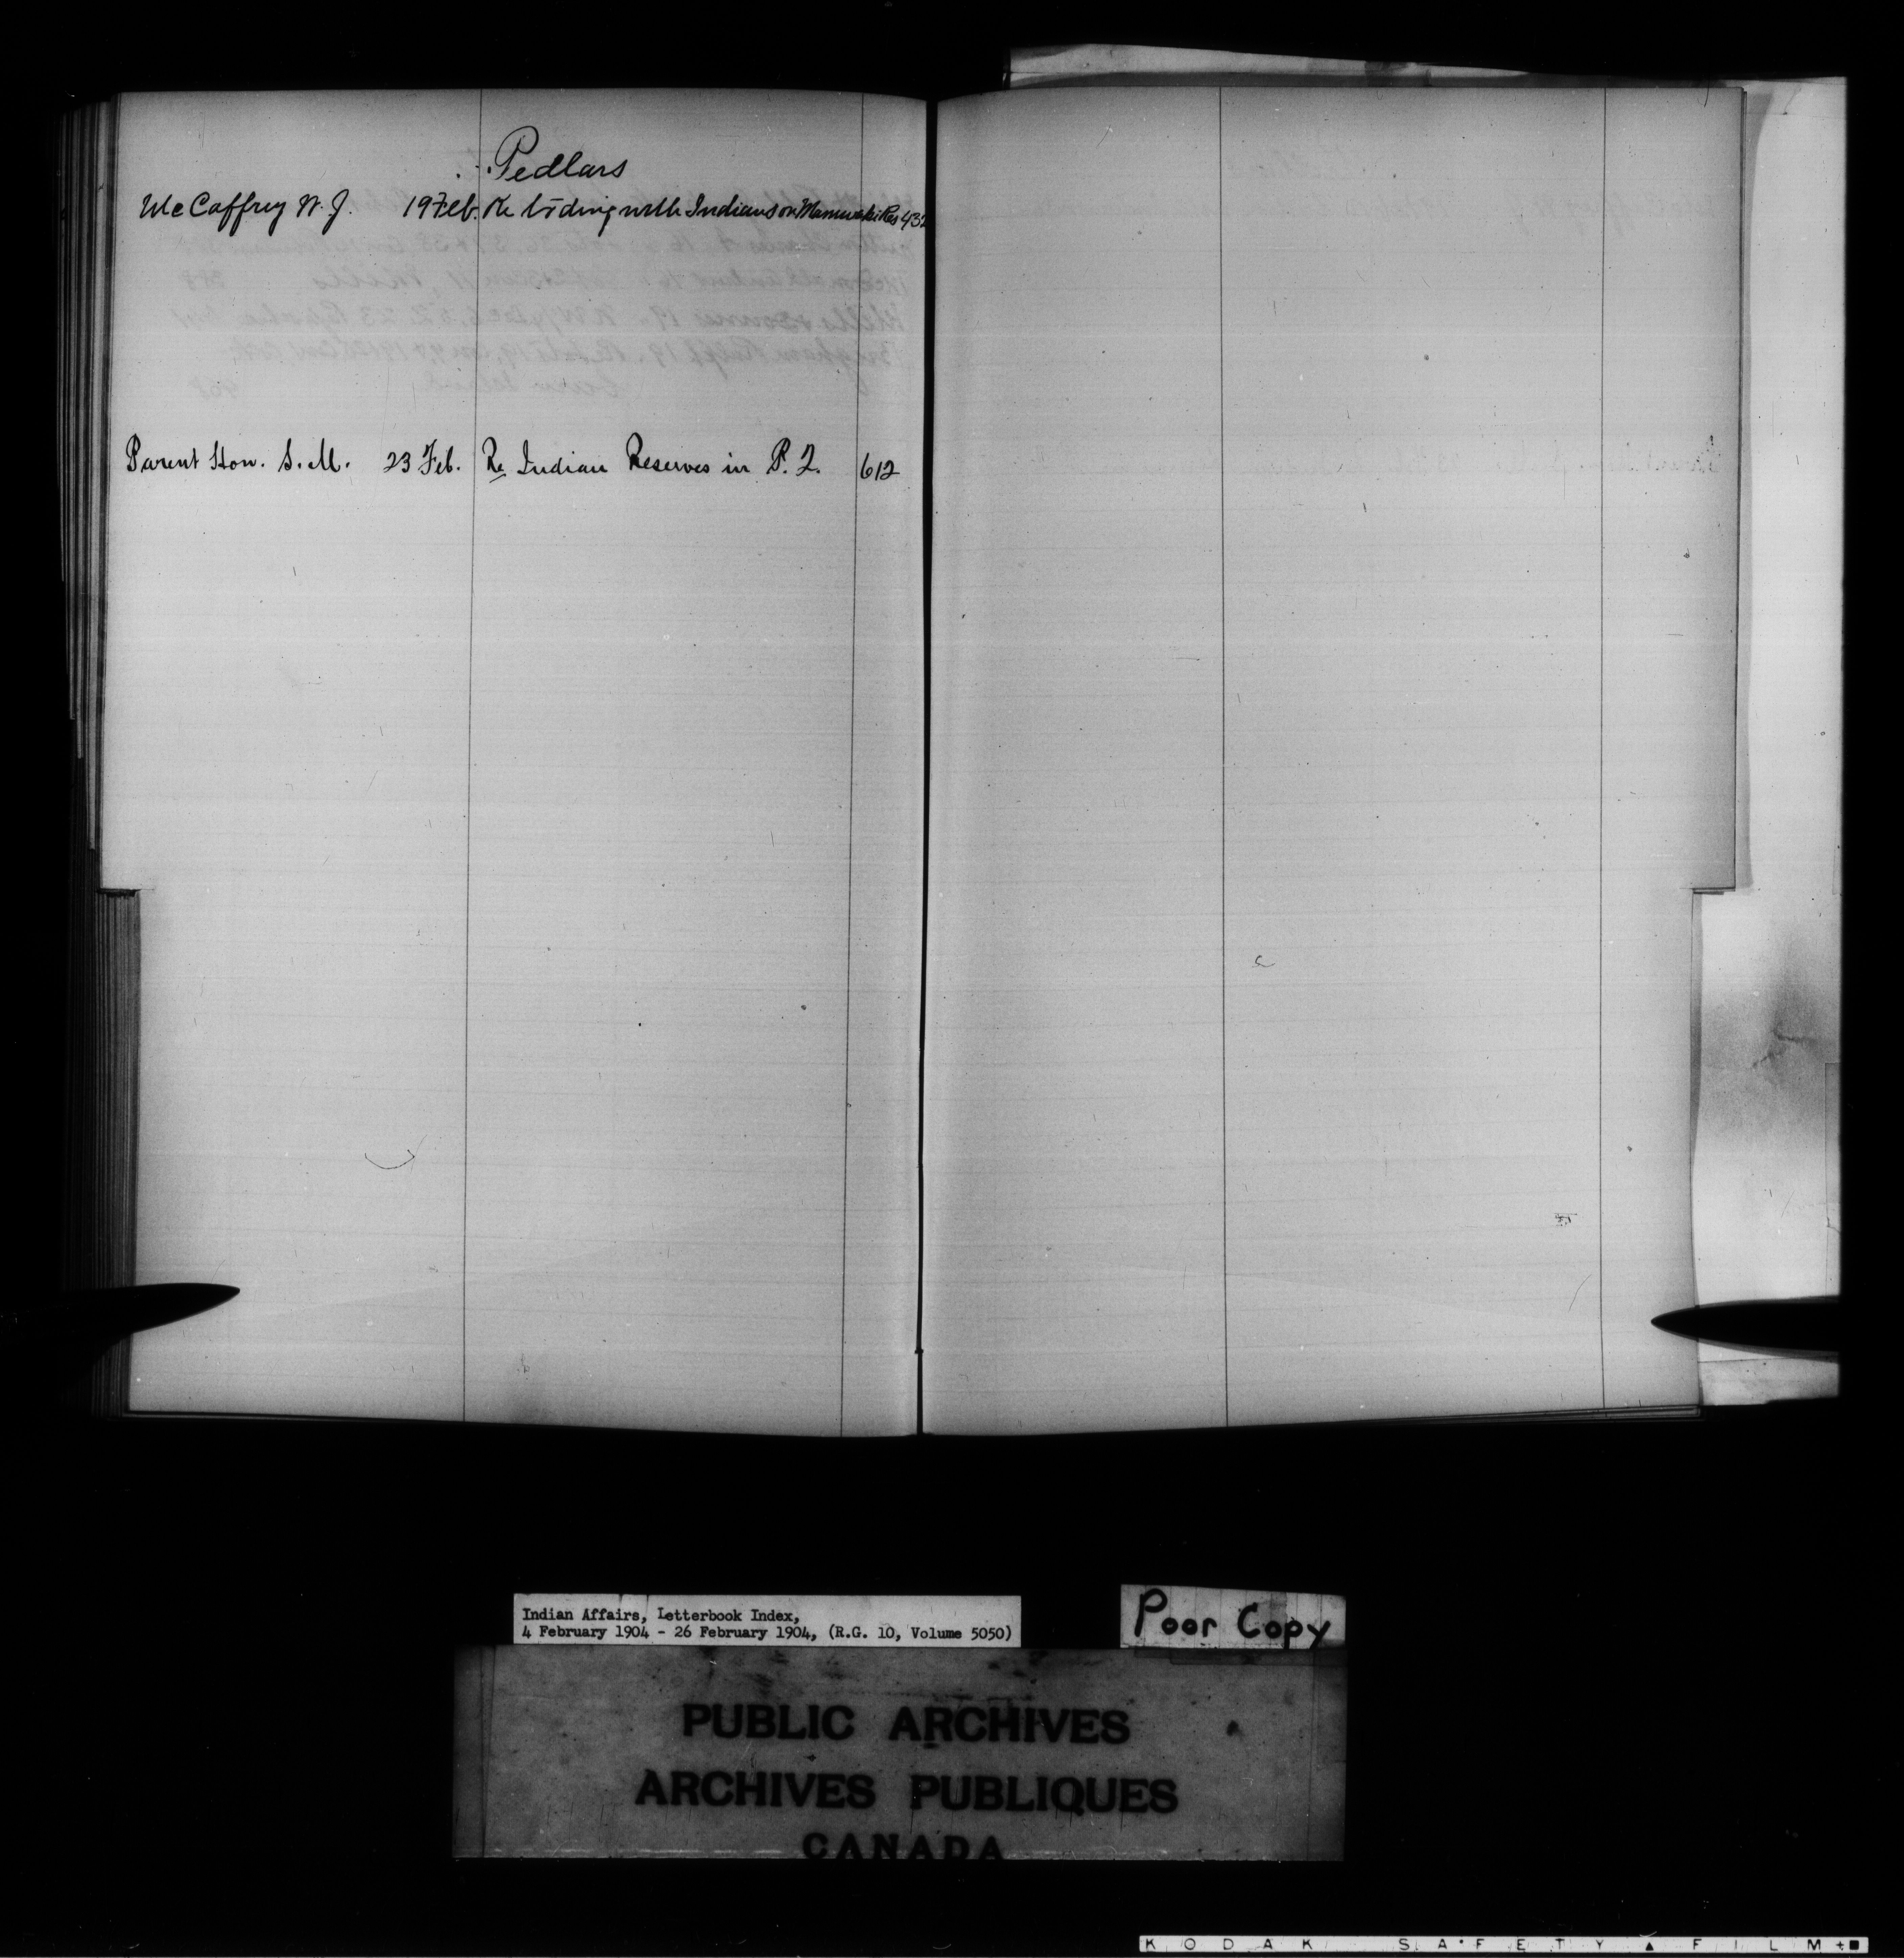 Pedlars
McCaffrey W. J. 19 Feb. Re trdiing with Indians on Maniwaki Res 432
Parent Hon. S. M. 23 Feb. Re Indian Reserves in P. Q. 612
Indian Affairs, Letterbook Index,
4 February 1904 - 26 February 1904, (R.G. 10, Volume 5050)
Poor Copy
PUBLIC ARCHIVES
ARCHIVES PUBLIQUES
CANADA
KODAK SAFETY FILM